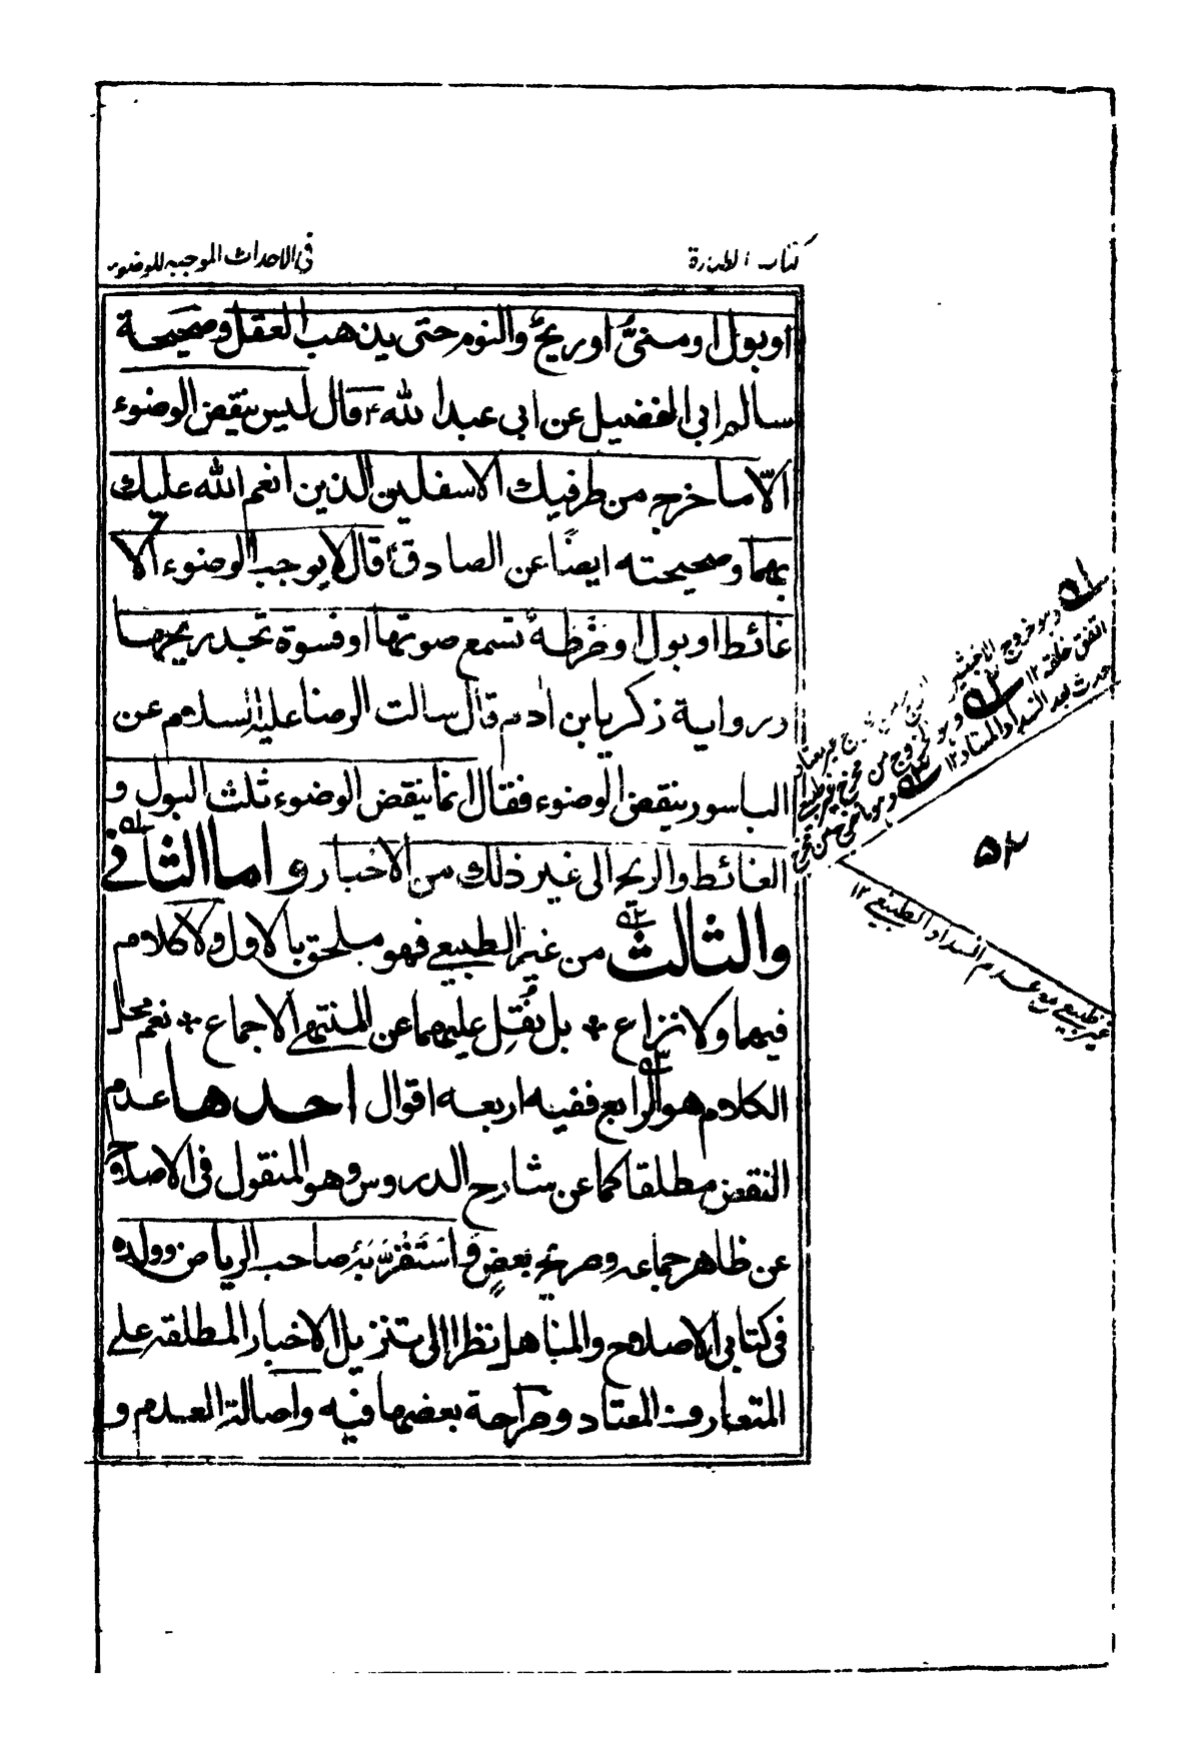 كتاب الطهارة
في الاحداث الموجبه للوضوء
او بول او منيٌّ او ريحٌ والنوم حتى يذهب العقل وصحيحة
سالم ابي الفضيل عن ابي عبد الله ؑ قال ليس ينقض الوضوء
الّا ما خرج من طرفيك الاسفلين الذين انعم الله عليك
بهما وصحيحته ايضًا عن الصادق ؑ قال لا يوجب الوضوء الا
غائط او بول او ضَرْطَةٌ تسمع صوتها او فسوة تجد ريحها
و رواية ذكريا بن ادم قال سالت الرضا عليه السلام عن
الباسور ينقض الوضوء فقال انما ينقض الوضوء ثلث البول و
الغائط والريح الى غير ذلك من الاخبار و اما الثاني
والثالث من غير الطبيعي فهو ملحق بالاول ولا كلام
فيهما ولا نزاع * بل نُقِل عليهما عن المنتهى الاجماع * نعم محل
الكلام هو الرابع ففيه اربعه اقوال احدها عدم
النقض مطلقا كما عن شارح الدروس وهو المنقول في الاصلاح
عن ظاهر جماعه وصريح بعضٍ و اسْتَقْرَبَهُ صاحب الرياض وولده
في كتابي الاصلاح والمناهل نظرا الى تنزيل الاخبار المطلقه على
المتعارف المعتاد وصراحة بعضها فيه واصالة العدم و
وهو خروج
اتفق خلقه ١٢
وهو الخروج من مخرج غير طبيعي
حدث بعد انسداد المعتاد ١٢
وهو ما خرج من مخرج
غير طبيعي مع عدم انسداد الطبيعي ١٢
٥٢